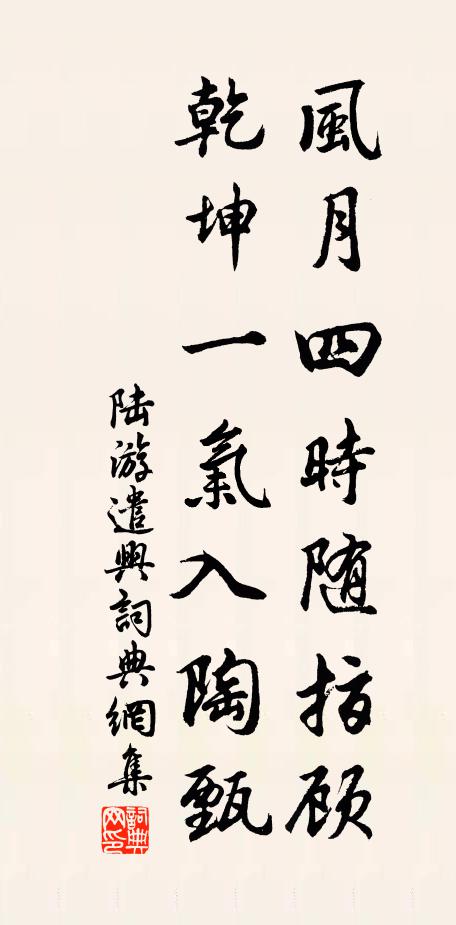 風月四時随指顾
乾坤一氣入陶甄
陆游遣興詞典網集
詞典网印